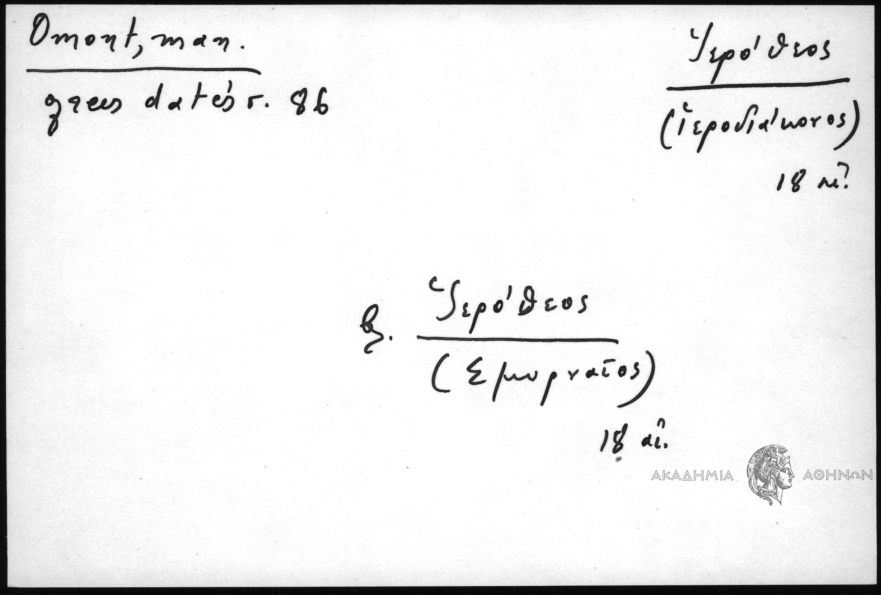 Omont, man.
grecs datés σ. 86
Ἱερόθεος
(ἱεροδιάκονος)
18 αἰ.
βλ. Ἱερόθεος
(Σμυρναῖος)
18 αἰ.
ΑΚΑΔΗΜΙΑ ΑΘΗΝΩΝ